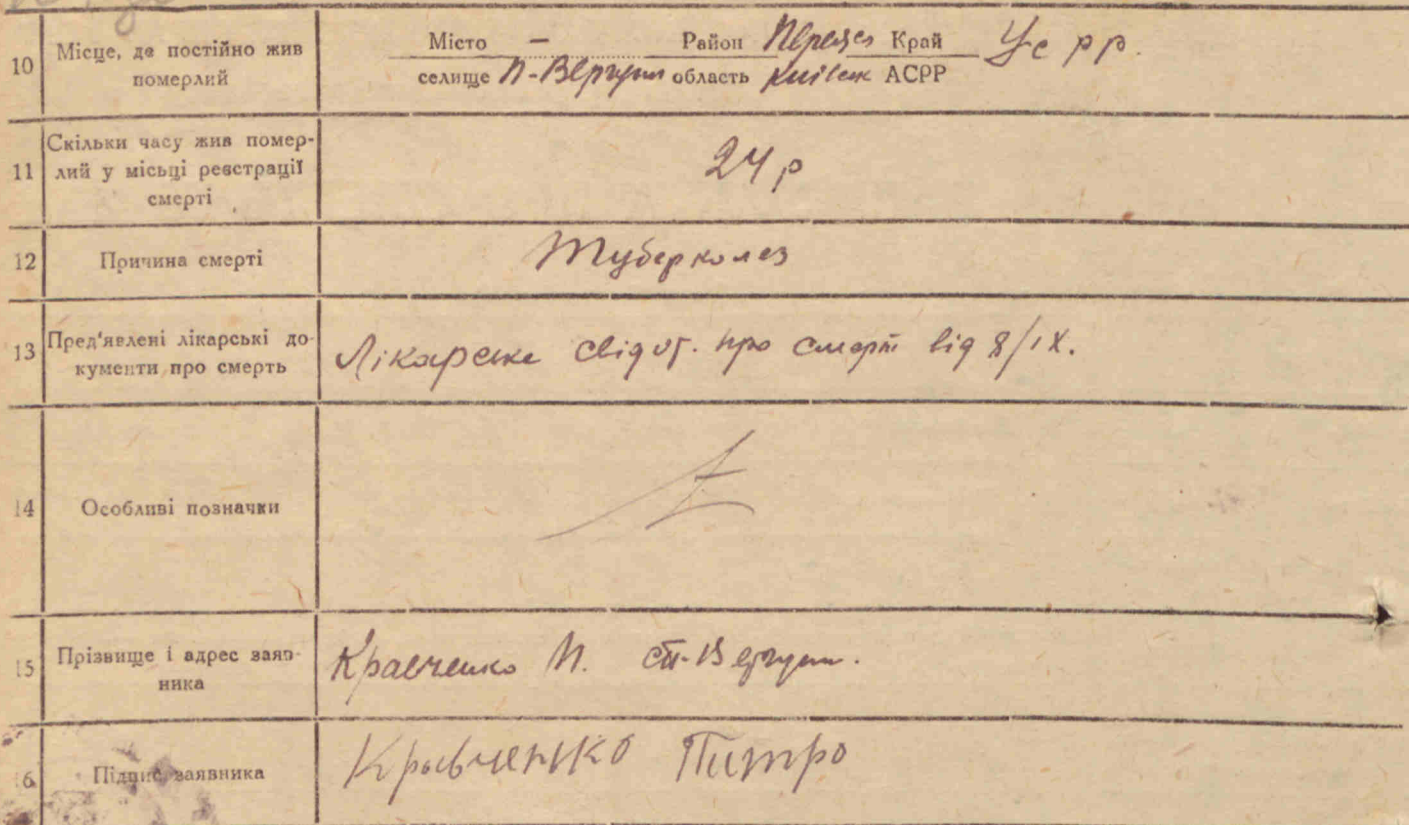 10 Місце, де постійно жив померлий
Місто – Район Переясл Край УСРР.
селище П-Вергуни область Київськ АСРР
11 Скільки часу жив помер-
лий у місьці реєстрації
смерті
24 р
12 Причина смерті
Туберколез
13 Пред'явлені лікарські до-
кументи про смерть
Лікарське свідот. про смерть від 8/IX.
14 Особливі позначки
15 Прізвище і адрес заяв-
ника
Кравченко П.
16 Підпис заявника
Кравченко Питро